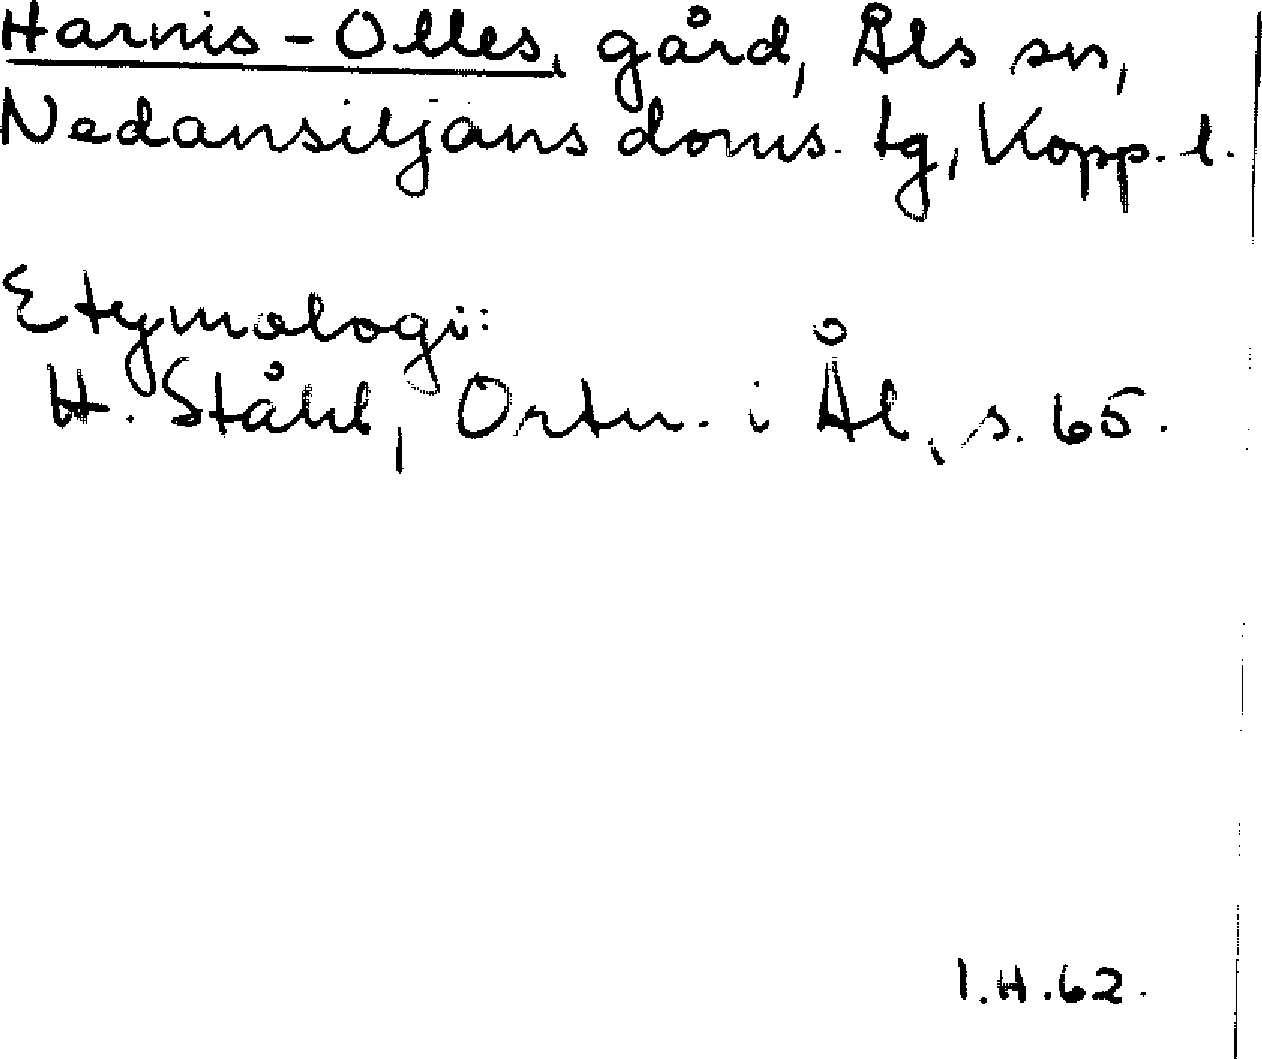 Harnis-Olles, gård, Åls sn,
Nedansiljans doms. tg, Kopp. l.
Etymologi:
H. Ståhl, Ortn. i Ål, s. 65.
I.H.62.